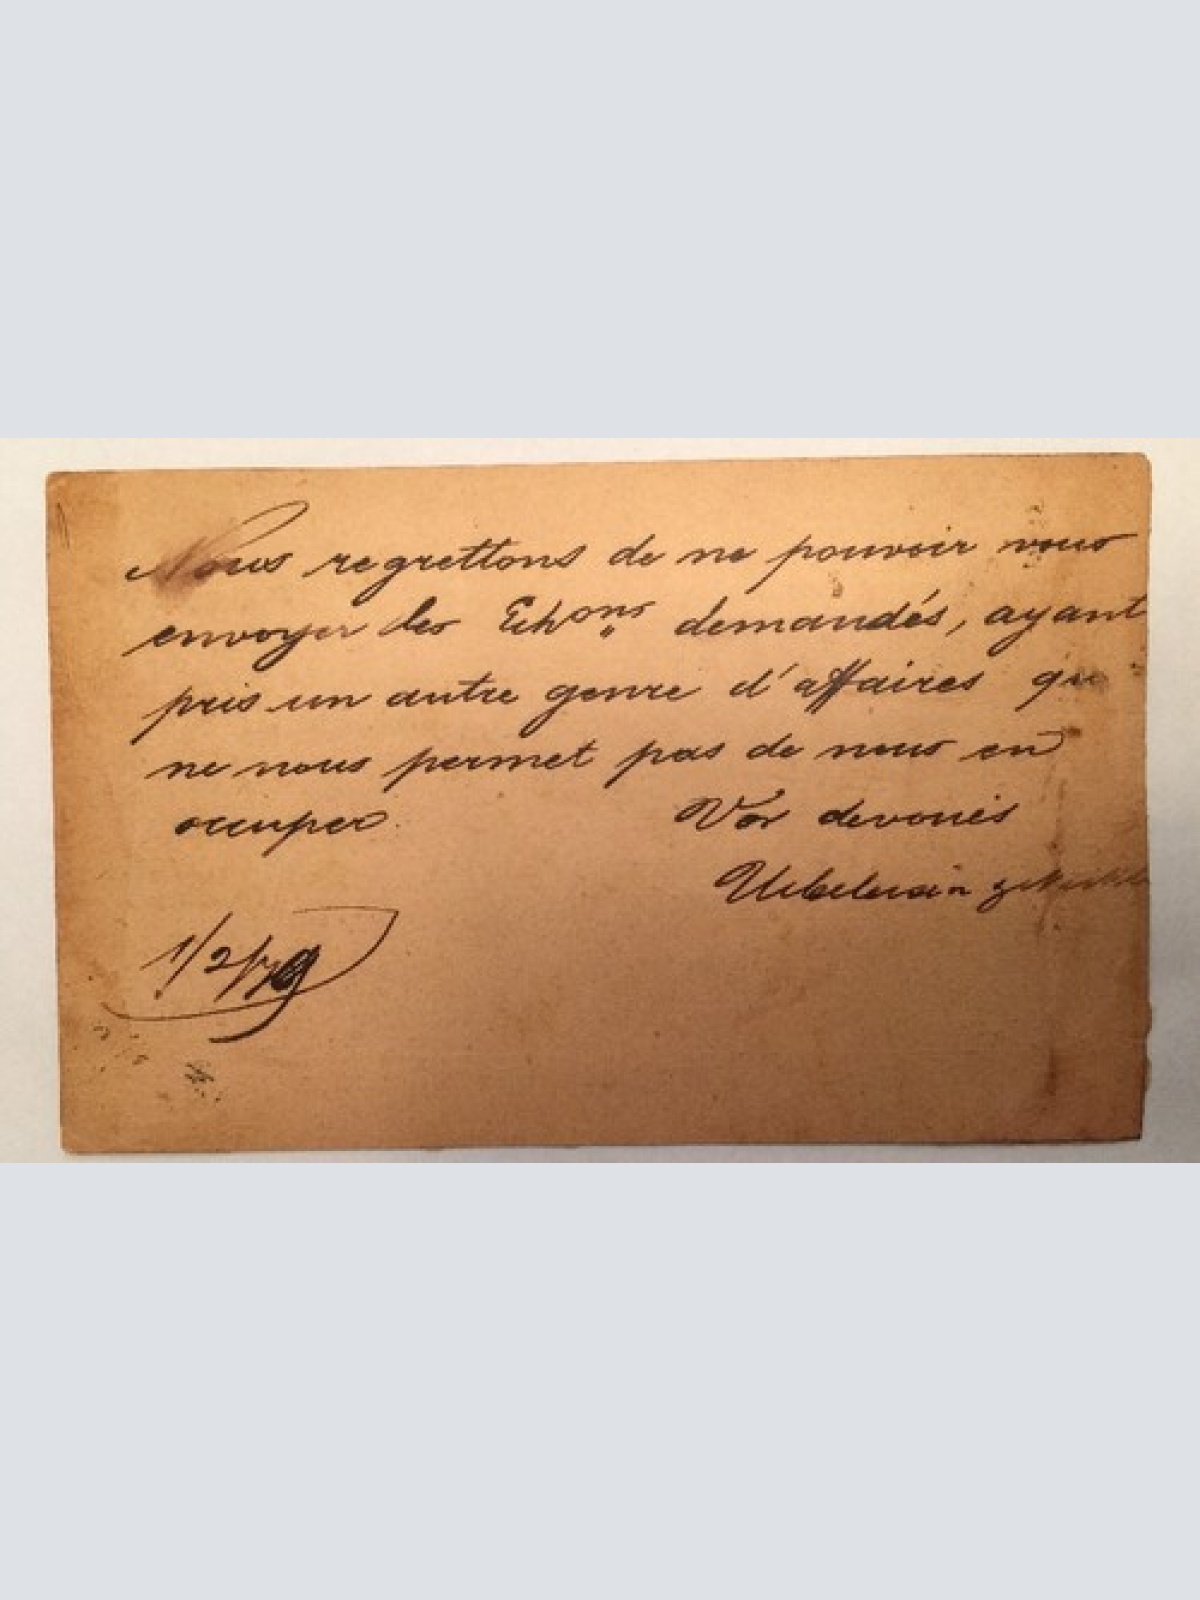 Nous regrettons de ne pouvoir vous
envoyer les Echons demandés, ayant
pris un autre genre d'affaires qui
ne nous permet pas de nous en
occuper.
Vos devoués
1/2/79